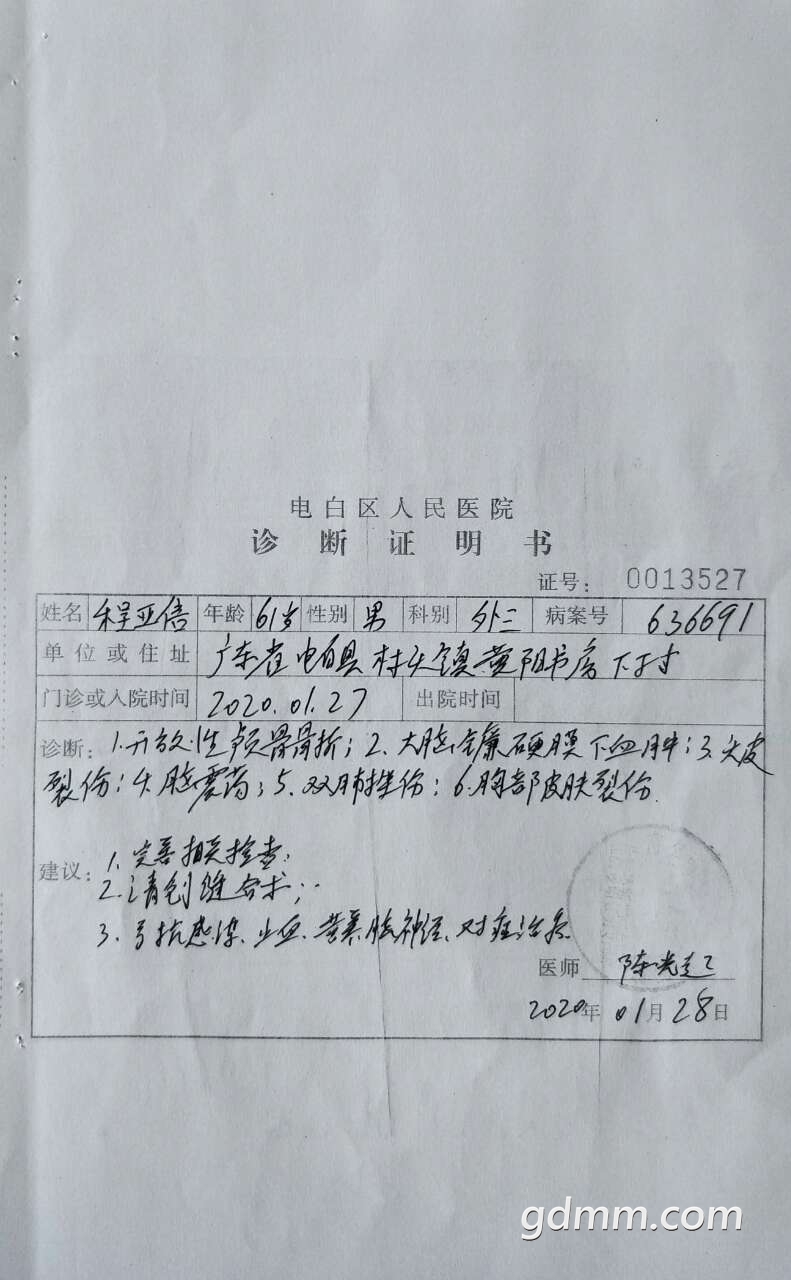 电白区人民医院
诊断证明书
证号： 0013527
姓名 程亚信 年龄 61岁 性别 男 科别 外三 病案号 636691
单位或住址 广东省电白县村头镇黄阳书房下村
门诊或入院时间 2020.01.27 出院时间
诊断：1.开放性颅骨骨折；2.大脑镰硬膜下血肿；3.头皮
裂伤；4.脑震荡；5.双肺挫伤；6.胸部皮肤裂伤
建议：1.完善相关检查；
2.清创缝合术；
3.予抗感染、止血、营养脑神经、对症治疗
医师 陈光
2020年01月28日
gdmm.com